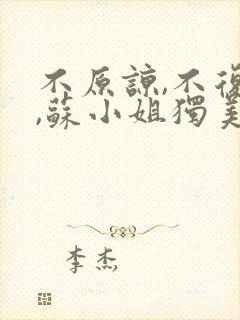 不原諒,不復
,蘇小姐獨美
李杰